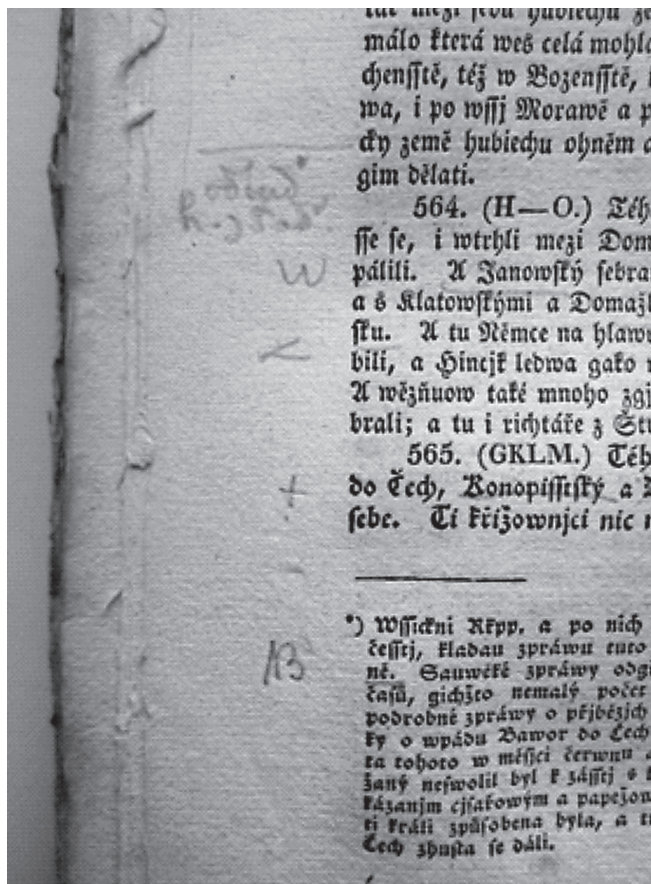 tať mezi sebú hubiechu ze
málo která wes celá mohla
chensstě, též w Bozensstě, i
wa, i po wssj Morawě a p
cky země hubiechu ohněm a
gim dělati.
564. (H—O.) Téh
sse se, i wtrhli mezi Dom
pálili. A Janowský sebra
a s Klatowskými a Domažl
sku. A tu Němce na hlawu
bili, a Hincjk ledwa gako
A wězňuow také mnoho zgj
brali; a tu i richtáře z Stu
565. (GKLM.) Téh
do Čech, Konopisstský a
sebe. Ti křižownjci nic n
W
+
NB
*) Wssickni Rkpp. a po nich
česstj, kladau zpráwu tuto
ně. Sauwěké zpráwy odgi
časů, gichžto nemalý počet
podrobné zpráwy o přjbězjch
ky o wpádu Bawor do Čech
ta tohoto w měsjci čerwnu a
žaný neswolil byl k zásstj s
kázanjm cjsařowým a papežow
ti králi způsobena byla, a t
Čech zhusta se dáli.